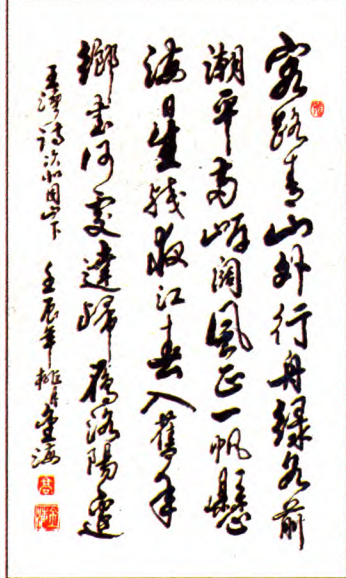 客路青山外行舟綠水前
潮平兩岸闊風正一帆懸
海日生殘夜江春入舊年
鄉書何處達歸雁洛陽邊
王灣詩次北固山下 壬辰年桃月海